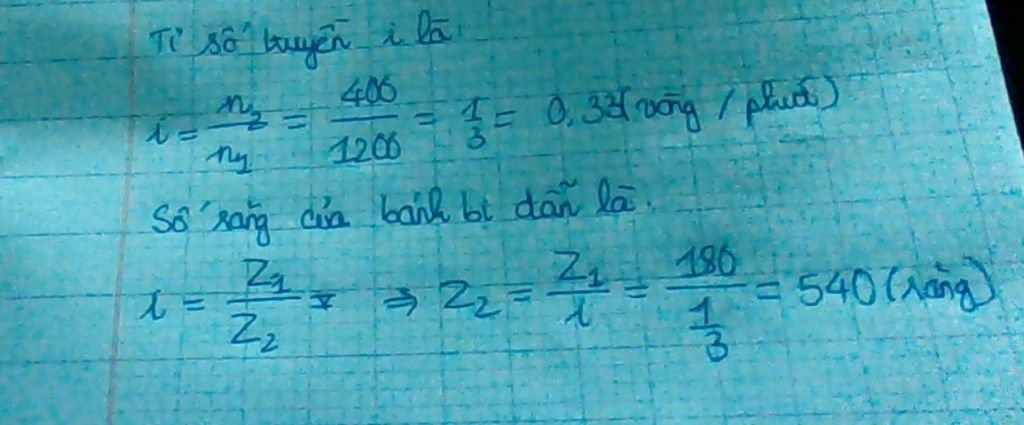 Tỉ số truyền i là
i = n₂/n₁ = 400/1200 = 1/3 = 0,33 (vòng / phút)
Số răng của bánh bị dẫn là.
i = Z₁/Z₂ ⇒ Z₂ = Z₁/i = 180/(1/3) = 540 (răng)